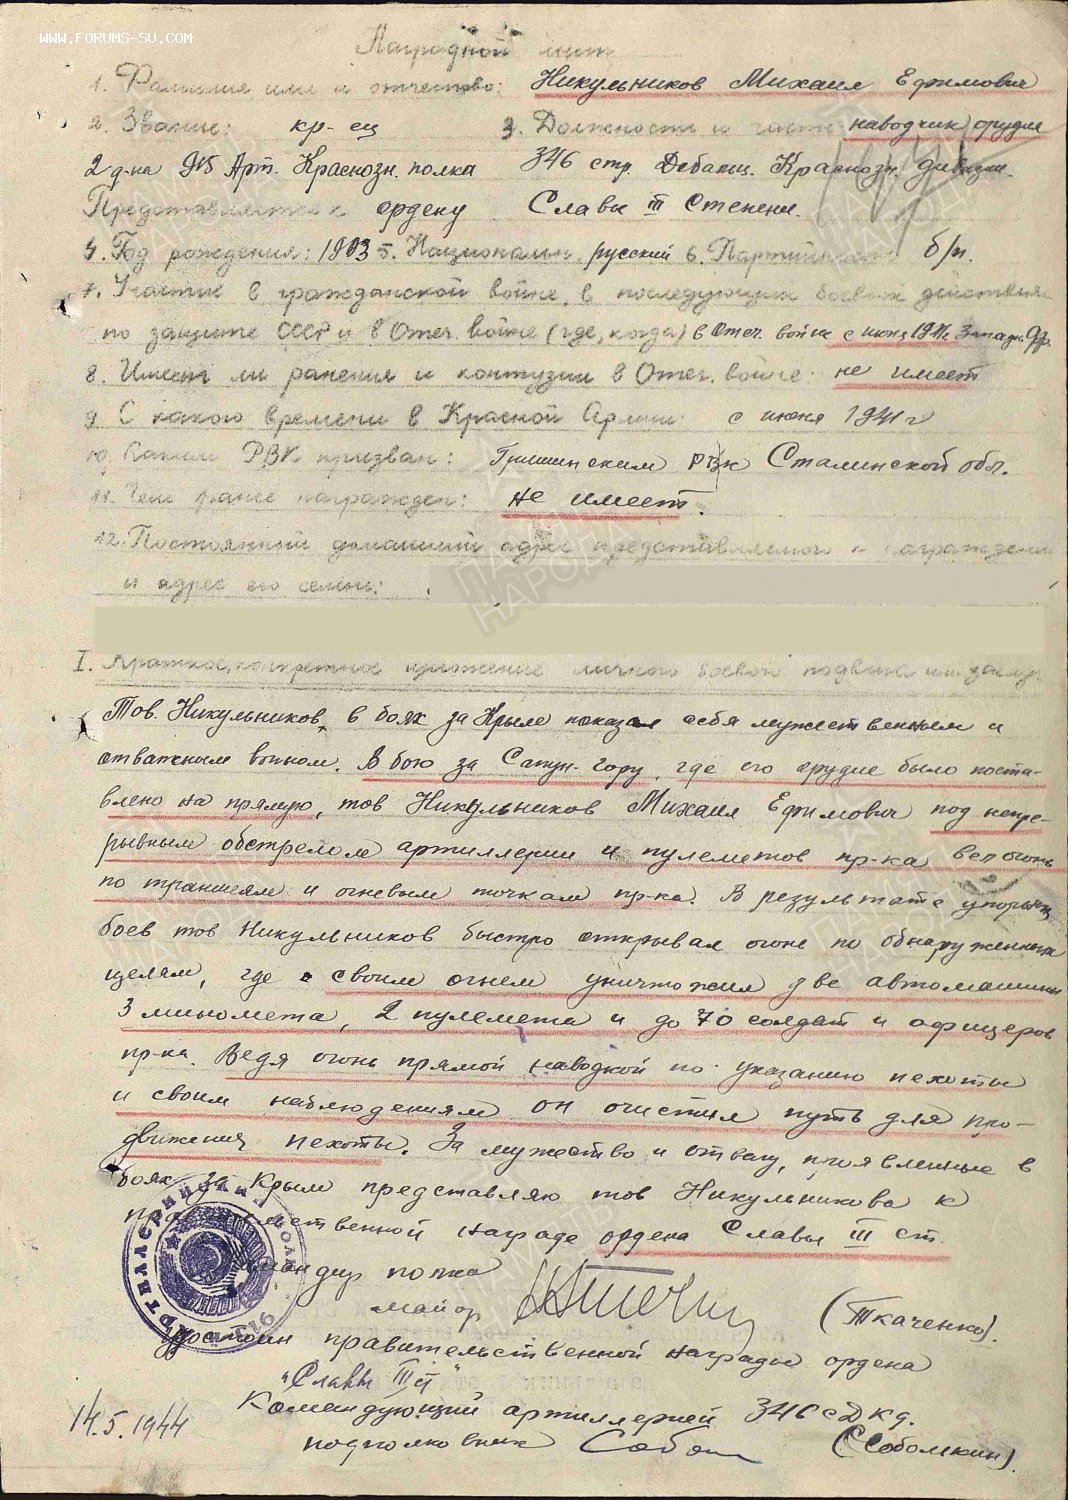 WWW.FORUMS-SU.COM
Наградной лист
1. Фамилия имя и отчество: Никульников Михаил Ефимович
2. Звание: кр-ец 3. Должность и часть наводчик орудия
2 д-на 915 Арт. Краснозн. полка 346 стр. Дебальц. Краснозн. дивизии.
Представляется к ордену Славы III Степени.
4. Год рождения: 1903 5. Национальн. русский 6. Партийность б/п.
7. Участие в гражданской войне, в последующих боевых действиях
по защите СССР и в Отеч. войне (где, когда) в Отеч. войне с июня 1941г. Западн. Фр.
8. Имеет ли ранения и контузии в Отеч. войне: не имеет
9. С какого времени в Красной Армии: с июня 1941г
10. Каким РВК призван: Гришинским РВК Сталинской обл.
11. Чем ранее награжден: не имеет.
12. Постоянный домашний адрес представляемого к награждению
и адрес его семьи:
I. Краткое, конкретное изложение личного боевого подвига или заслуг:
Тов. Никульников, в боях за Крым показал себя мужественным и
отважным воином. В бою за Сапун-гору, где его орудие было поста-
влено на прямую, тов Никульников Михаил Ефимович под непре-
рывным обстрелом артиллерии и пулеметов пр-ка вел огонь
по траншеям и огневым точкам пр-ка. В результате упорных
боев тов Никульников быстро открывал огонь по обнаруженным
целям, где своим огнем уничтожил две автомашины
3 миномета, 2 пулемета и до 70 солдат и офицеров
пр-ка. Ведя огонь прямой наводкой по указанию пехоты
и своим наблюдениям он очистил путь для про-
движения пехоты. За мужество и отвагу, проявленные в
боях за Крым представляю тов Никульникова к
правительственной награде ордена Славы III ст.
Командир полка
майор (Ткаченко).
Достоин правительственной награды ордена
"Славы III ст"
Командующий артиллерией 346 сДКд.
подполковник (Соболмкин).
14.5.1944
Артиллерийский полк
915-й
ПАМЯТЬ НАРОДА